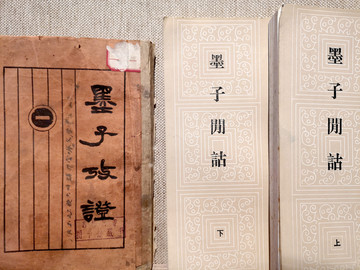 墨子攷證
墨子閒詁
下
墨子閒詁
上